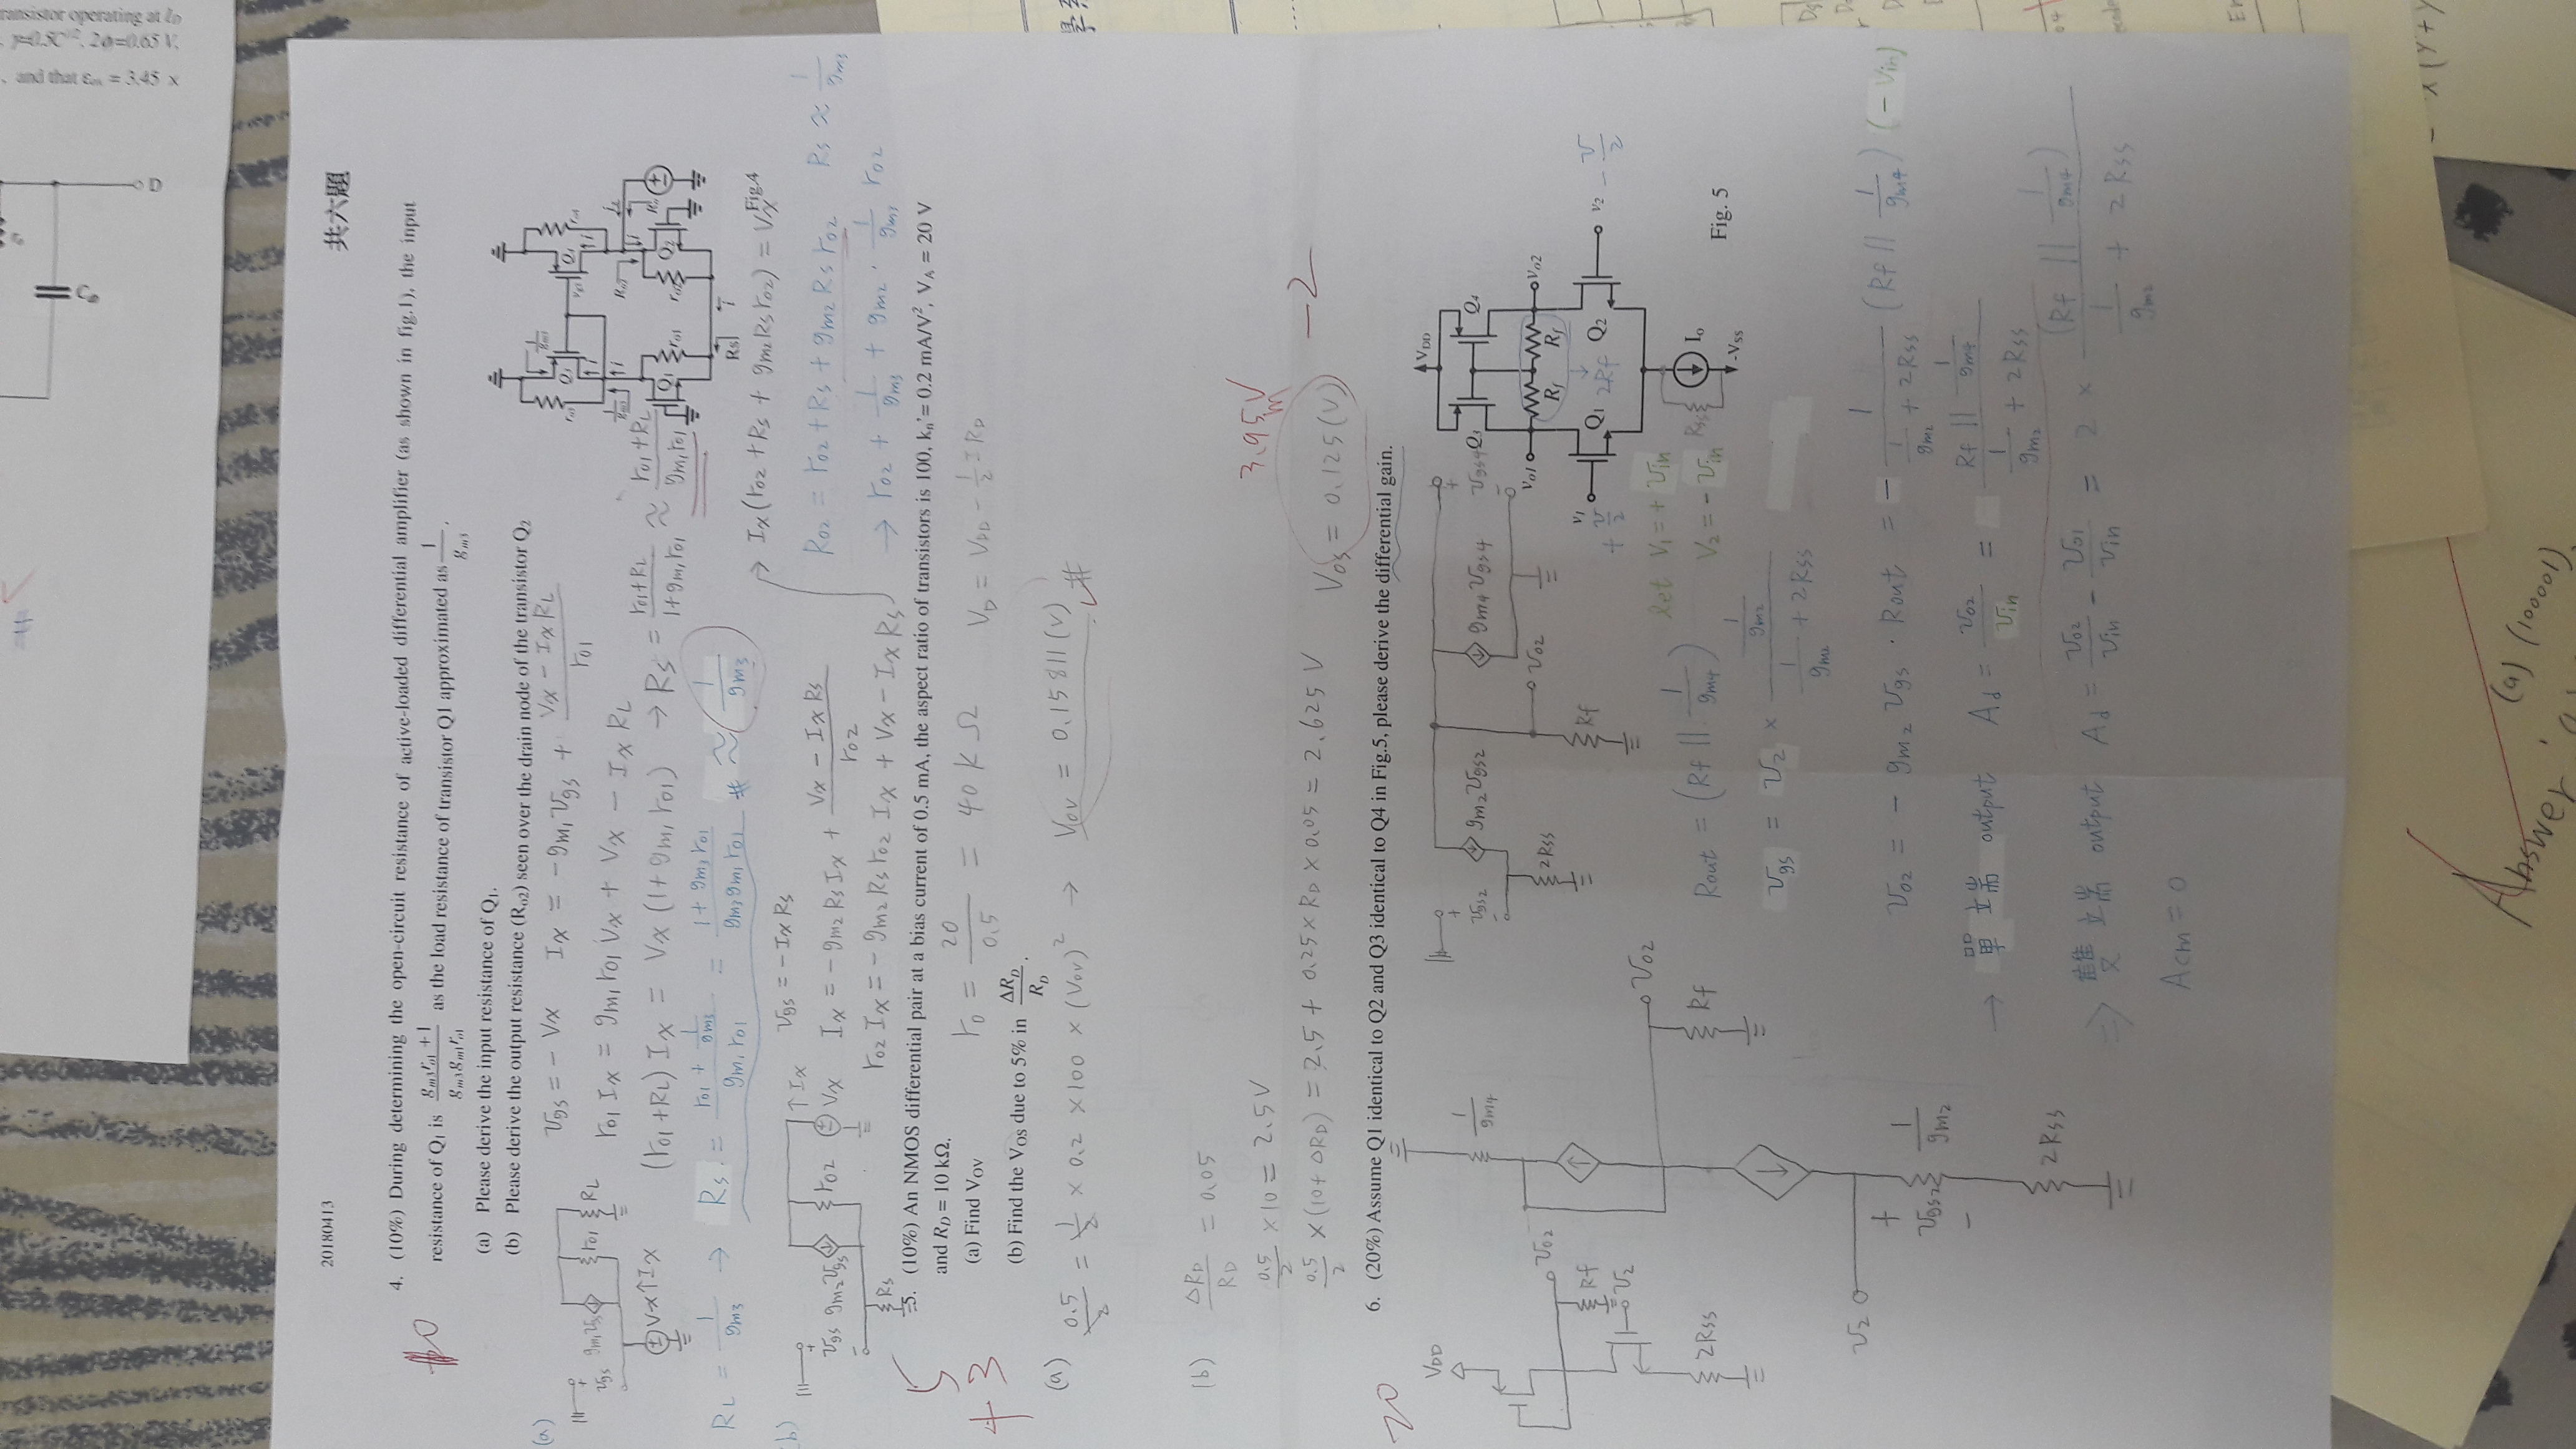 and that εox = 3.45 x
D
20180413
共六題
4. (10%) During determining the open-circuit resistance of active-loaded differential amplifier (as shown in fig.1), the input
resistance of Q1 is (gm3ro1 + 1)/(gm3gm1ro1) as the load resistance of transistor Q1 approximated as 1/gm3.
(a) Please derive the input resistance of Q1.
(b) Please derive the output resistance (Ro2) seen over the drain node of the transistor Q2
(a)
Vgs = - Vx Ix = -gm1Vgs + (Vx - IxRL)/ro1
gm1Vgs ro1 RL
Vgs
Vx ↑Ix
ro1 Ix = gm1 ro1 Vx + Vx - Ix RL
(ro1+RL) Ix = Vx (1+gm1 ro1) → Rs = (ro1+RL)/(1+gm1ro1) ≈ (ro1+RL)/(gm1ro1)
RL = 1/gm3 → Rs = (ro1 + 1/gm3)/(gm1 ro1) = (1+gm3 ro1)/(gm3gm1ro1) # ≈ 1/gm3
Q3 Q4
Q1 ro1 Q2
Rs i
Fig.4
(b)
Vgs gm2Vgs ro2 ↑Ix Vx
Rs
Vgs = -Ix Rs
Ix = -gm2 Rs Ix + (Vx - Ix Rs)/ro2
ro2 Ix = -gm2 Rs ro2 Ix + Vx - Ix Rs
→ Ix (ro2 + Rs + gm2 Rs ro2) = Vx
Ro2 = ro2 + Rs + gm2 Rs ro2 Rs ≈ 1/gm3
→ ro2 + 1/gm3 + gm2 · 1/gm3 ro2
5
+3
5. (10%) An NMOS differential pair at a bias current of 0.5 mA, the aspect ratio of transistors is 100, kn'= 0.2 mA/V², VA = 20 V
and RD = 10 kΩ.
(a) Find VOV
ro = 20/0.5 = 40 kΩ VD = VDD - 1/2 I RD
(b) Find the VOS due to 5% in ΔRD/RD.
(a) 0.5/2 = 1/2 × 0.2 × 100 × (Vov)² → Vov = 0.15811 (V) #
(b) ΔRD/RD = 0.05
0.5/2 × 10 = 2.5 V
0.5/2 × (10+ ΔRD) = 2.5 + 0.25 × RD × 0.05 = 2.625 V
3.95 mV
Vos = 0.125 (V)
-2
20
6. (20%) Assume Q1 identical to Q2 and Q3 identical to Q4 in Fig.5, please derive the differential gain.
VDD
Vo2
Rf
V2
2Rss
1/gm4
Vo2
Rf
V2
+
Vgs2 1/gm2
-
2Rss
Vgs2 gm2Vgs2 gm4Vgs4 Vgs4
2Rss Rf Vo2
VDD
Q3 Q4
vo1 Rf Rf vo2
v1 Q1 2Rf Q2 v2
+ V/2 - V/2
Rss Io
-VSS
Fig. 5
let V1 = + Vin
V2 = - Vin
Rout = (Rf || 1/gm4)
Vgs = V2 × (1/gm2)/(1/gm2 + 2Rss)
Vo2 = - gm2 Vgs · Rout = - 1/(1/gm2 + 2Rss) (Rf || 1/gm4) (-Vin)
→ 單端 output Ad = Vo2/Vin = (Rf || 1/gm4)/(1/gm2 + 2Rss)
⇒ 雙端 output Ad = Vo2/Vin - Vo1/Vin = 2 × (Rf || 1/gm4)/(1/gm2 + 2Rss)
Acm = 0
Answer:
(a) (100001)